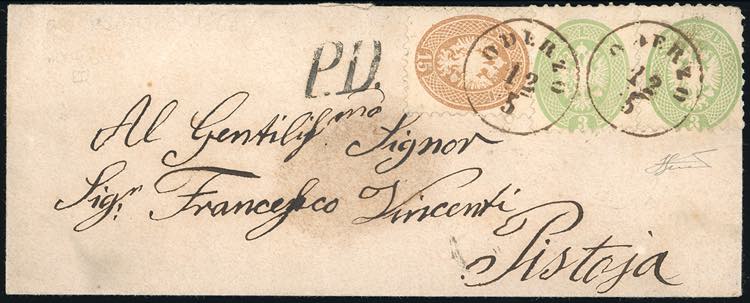 P.D.
15
ODERZO
12
5
3
ODERZO
12
5
3
Al Gentiliss.mo Signor
Sig.r Francesco Vincenti
Pistoja